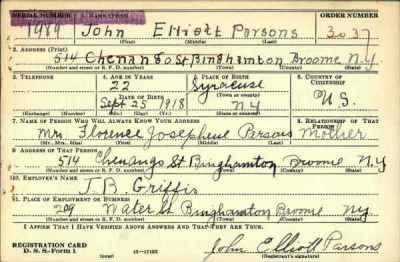 SERIAL NUMBER 1. NAME (Print) ORDER NUMBER
1989 John Elliott Parsons 3037
(First) (Middle) (Last)
2. ADDRESS (Print)
514 Chenango St Binghamton Broome N.Y
(Number and street or R. F. D. number) (Town) (County) (State)
3. TELEPHONE 4. AGE IN YEARS 5. PLACE OF BIRTH 6. COUNTRY OF CITIZENSHIP
22 Syracuse
DATE OF BIRTH (Town or county)
Sept 25 1918 N Y U.S.
(Exchange) (No.) (Mo.) (Day) (Yr.) (State or country)
7. NAME OF PERSON WHO WILL ALWAYS KNOW YOUR ADDRESS 8. RELATIONSHIP OF THAT PERSON
Mrs Florence Josephine Parsons Mother
(Mr., Mrs., Miss) (First) (Middle) (Last)
9. ADDRESS OF THAT PERSON
514 Chenango St Binghamton Broome N.Y
(Number and street or R. F. D. number) (Town) (County) (State)
10. EMPLOYER'S NAME
J.B. Griffis
11. PLACE OF EMPLOYMENT OR BUSINESS
209 Water St Binghamton Broome Ny.
(Number and street or R. F. D. number) (Town) (County) (State)
I AFFIRM THAT I HAVE VERIFIED ABOVE ANSWERS AND THAT THEY ARE TRUE.
REGISTRATION CARD
D. S. S. Form 1 (over) 16—17105 John Elliott Parsons
(Registrant's signature)